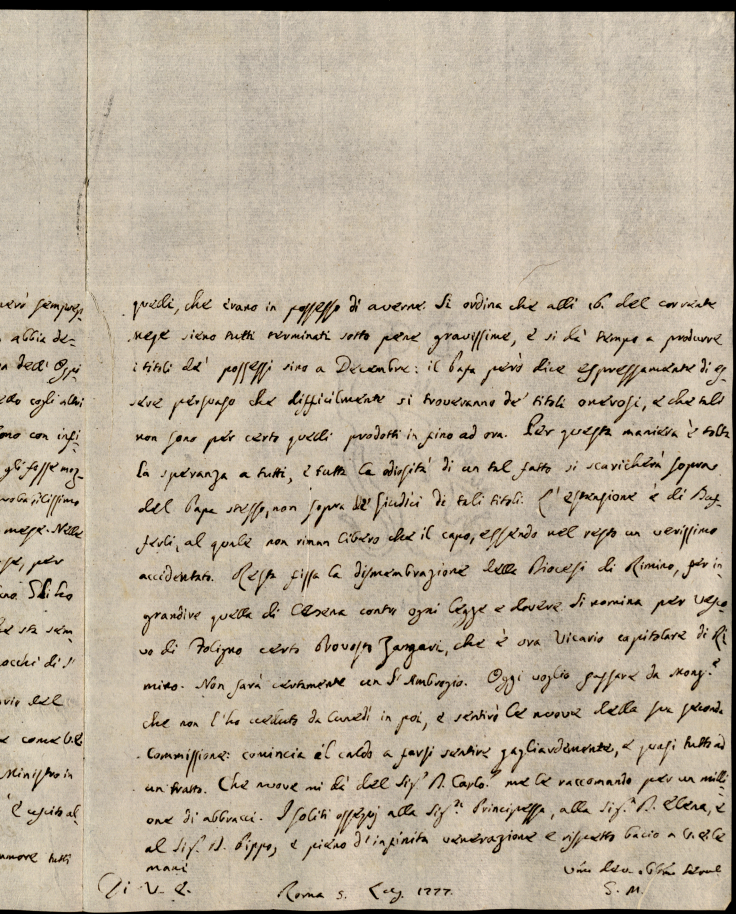 quelli, che erano in possesso di averne. Si ordina che alli 16. del corrente
mese siano tutti terminati sotto pene gravissime, e si dà tempo a produrre
i titoli de' possessi sino a Decembre: il Papa però dice espressamente di es-
sere persuaso che difficilmente si troveranno de' titoli onerosi, e che tali
non sono per certo quelli prodotti in fino ad ora. Per questa maniera è tolta
la speranza a tutti, e tutta la odiosità di un tal fatto si scaricherà sopra
del Papa stesso, non sopra de' Giudici di tali titoli. L'estensione è di
al quale non riman libero che il capo, essendo nel resto un verissimo
accidentato. Resta fissa la dismembrazione della Diocesi di Rimino, per in-
grandire quella di Cesena contro ogni legge e dovere si nomina per Vesco-
vo di Foligno certo Provosto che è ora Vicario capitolare di Ri-
mino. Non sarà certamente un S. Ambrogio. Oggi voglio passare da Mons.e
che non l'ho veduto da Lunedì in poi, e sentirò le nuove della sua seconda
Commissione: comincia il caldo a farsi sentire gagliardamente, e quasi tutto ad
un tratto. Che nuove mi dà del Sig.r D. Carlo? me le raccomando per un milli-
one di abbracci. I soliti ossequj alla Sig.ra Principessa, alla Sig.a D. Elena, e
al Sig. D. Pippo, e pieno d'infinita venerazione e rispetto bacio a V.E. le
mani
Di V. E.
Roma 5. Lug. 1777.
S. M.
nerò sempre
abbia de-
cogli altri
sono con infi-
gli fosse
mese. Nelle
per
sta sem-
occhi di S
come V.E.
Ministro in
è uscito al-
tutti